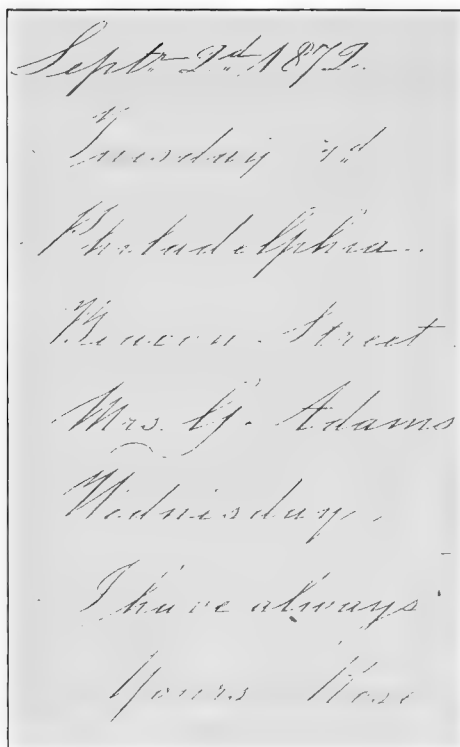 Septr 2d 1872.
Tuesday
Philadelphia.
Beacon Street.
Mrs. G. Adams
Wednisday,
I have always
Yours Rose